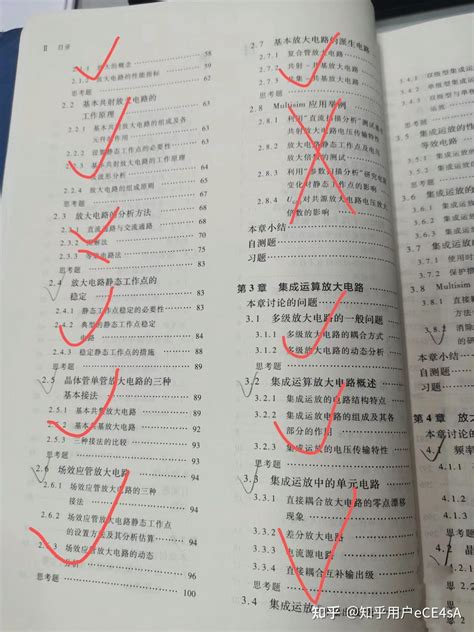 II 目录
2.1.1 放大的概念 58
2.1.2 放大电路的性能指标 59
思考题 62
2.2 基本共射放大电路的
工作原理 63
2.2.1 基本共射放大电路的组成及各
元件的作用 63
2.2.2 设置静态工作点的必要性
2.2.3 基本共射放大电路的工作原理
及波形分析
2.2.4 放大电路的组成原则
思考题
2.3 放大电路的分析方法 68
2.3.1 直流通路与交流通路 68
2.3.2 图解法 70
2.3.3 等效电路法 75
思考题
2.4 放大电路静态工作点的
稳定 83
2.4.1 静态工作点稳定的必要性 83
2.4.2 典型的静态工作点稳定
电路 84
2.4.3 稳定静态工作点的措施 88
思考题 89
2.5 晶体管单管放大电路的三种
基本接法 89
2.5.1 基本共集放大电路 89
2.5.2 基本共基放大电路 92
2.5.3 三种接法的比较 93
思考题 94
2.6 场效应管放大电路 94
2.6.1 场效应管放大电路的三种
接法 94
2.6.2 场效应管放大电路静态工作点
的设置方法及其分析估算 94
2.6.3 场效应管放大电路的动态
分析 96
思考题 100
2.7 基本放大电路的派生电路
2.7.1 复合管放大电路
2.7.2 共射-共基放大电路
2.7.3 共集-共基放大电路
思考题
2.8 Multisim 应用举例
2.8.1 利用直流扫描分析测试
放大电路电压传输特性
2.8.2 放大电路静态工作点及电压
放大倍数的测试
2.8.3 利用“参数扫描分析”研究
变化对静态工作点的影响
2.8.4 对共源放大电路电压放大
倍数的影响
本章小结
自测题
习题
第 3 章 集成运算放大电路
本章讨论的问题
3.1 多级放大电路的一般问题
3.1.1 多级放大电路的耦合方式
3.1.2 多级放大电路的动态分析
思考题
3.2 集成运算放大电路概述
3.2.1 集成运放的电路结构特点
3.2.2 集成运放电路的组成及其各
部分的作用
3.2.3 集成运放的电压传输特性
思考题
3.3 集成运放中的单元电路
3.3.1 直接耦合放大电路的零点漂移
现象
3.3.2 差分放大电路
3.3.3 电流源电路
3.3.4 直接耦合互补输出级
思考题
3.4 集成运放
3.4.1 双极型集
3.4.2 单极型集
思考题
3.5 集成运放的
等效电路
3.5.1
3.5.2
思考题
3.6 集成运放
3.7 集成运放
思考题
3.8 Multisim
本章小结
自测题
习题
第 4 章 放
本章讨论的
4.1 频率
思考题
4.2
知乎 @知乎用户eCE4sA